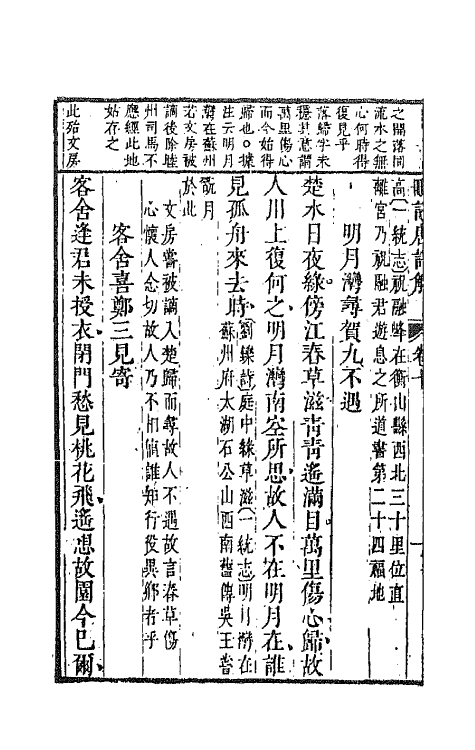 之開落同
流水之無
心何時得
復見乎
落歸字未
穩其意謂
萬里傷心
而今始得
歸也〇據
注云明月
灣在蘇州
若文房被
謫後除睦
州司馬不
應經此地
姑存之
此殆文房
於此
高(一統志祝融峰在衡山縣西北三十里位直
離宮乃祝融君遊息之所道書第二十四福地
明月灣尋賀九不遇
楚水日夜綠傍江春草滋青青遙滿目萬里傷心歸故
人川上復何之明月灣南空所思故人不在明月在誰
見孤舟來去時
劉繪詩庭中綠草滋(一統志明月灣在
蘇州府太湖石公山西南舊傳吳王嘗
翫月
文房嘗被謫入楚歸而尋故人不遇故言春草傷
心懷人念切故人乃不相值誰知行役異鄉者乎
客舍喜鄭三見寄
客舍逢君未授衣閉門愁見桃花飛遙想故園今已爾